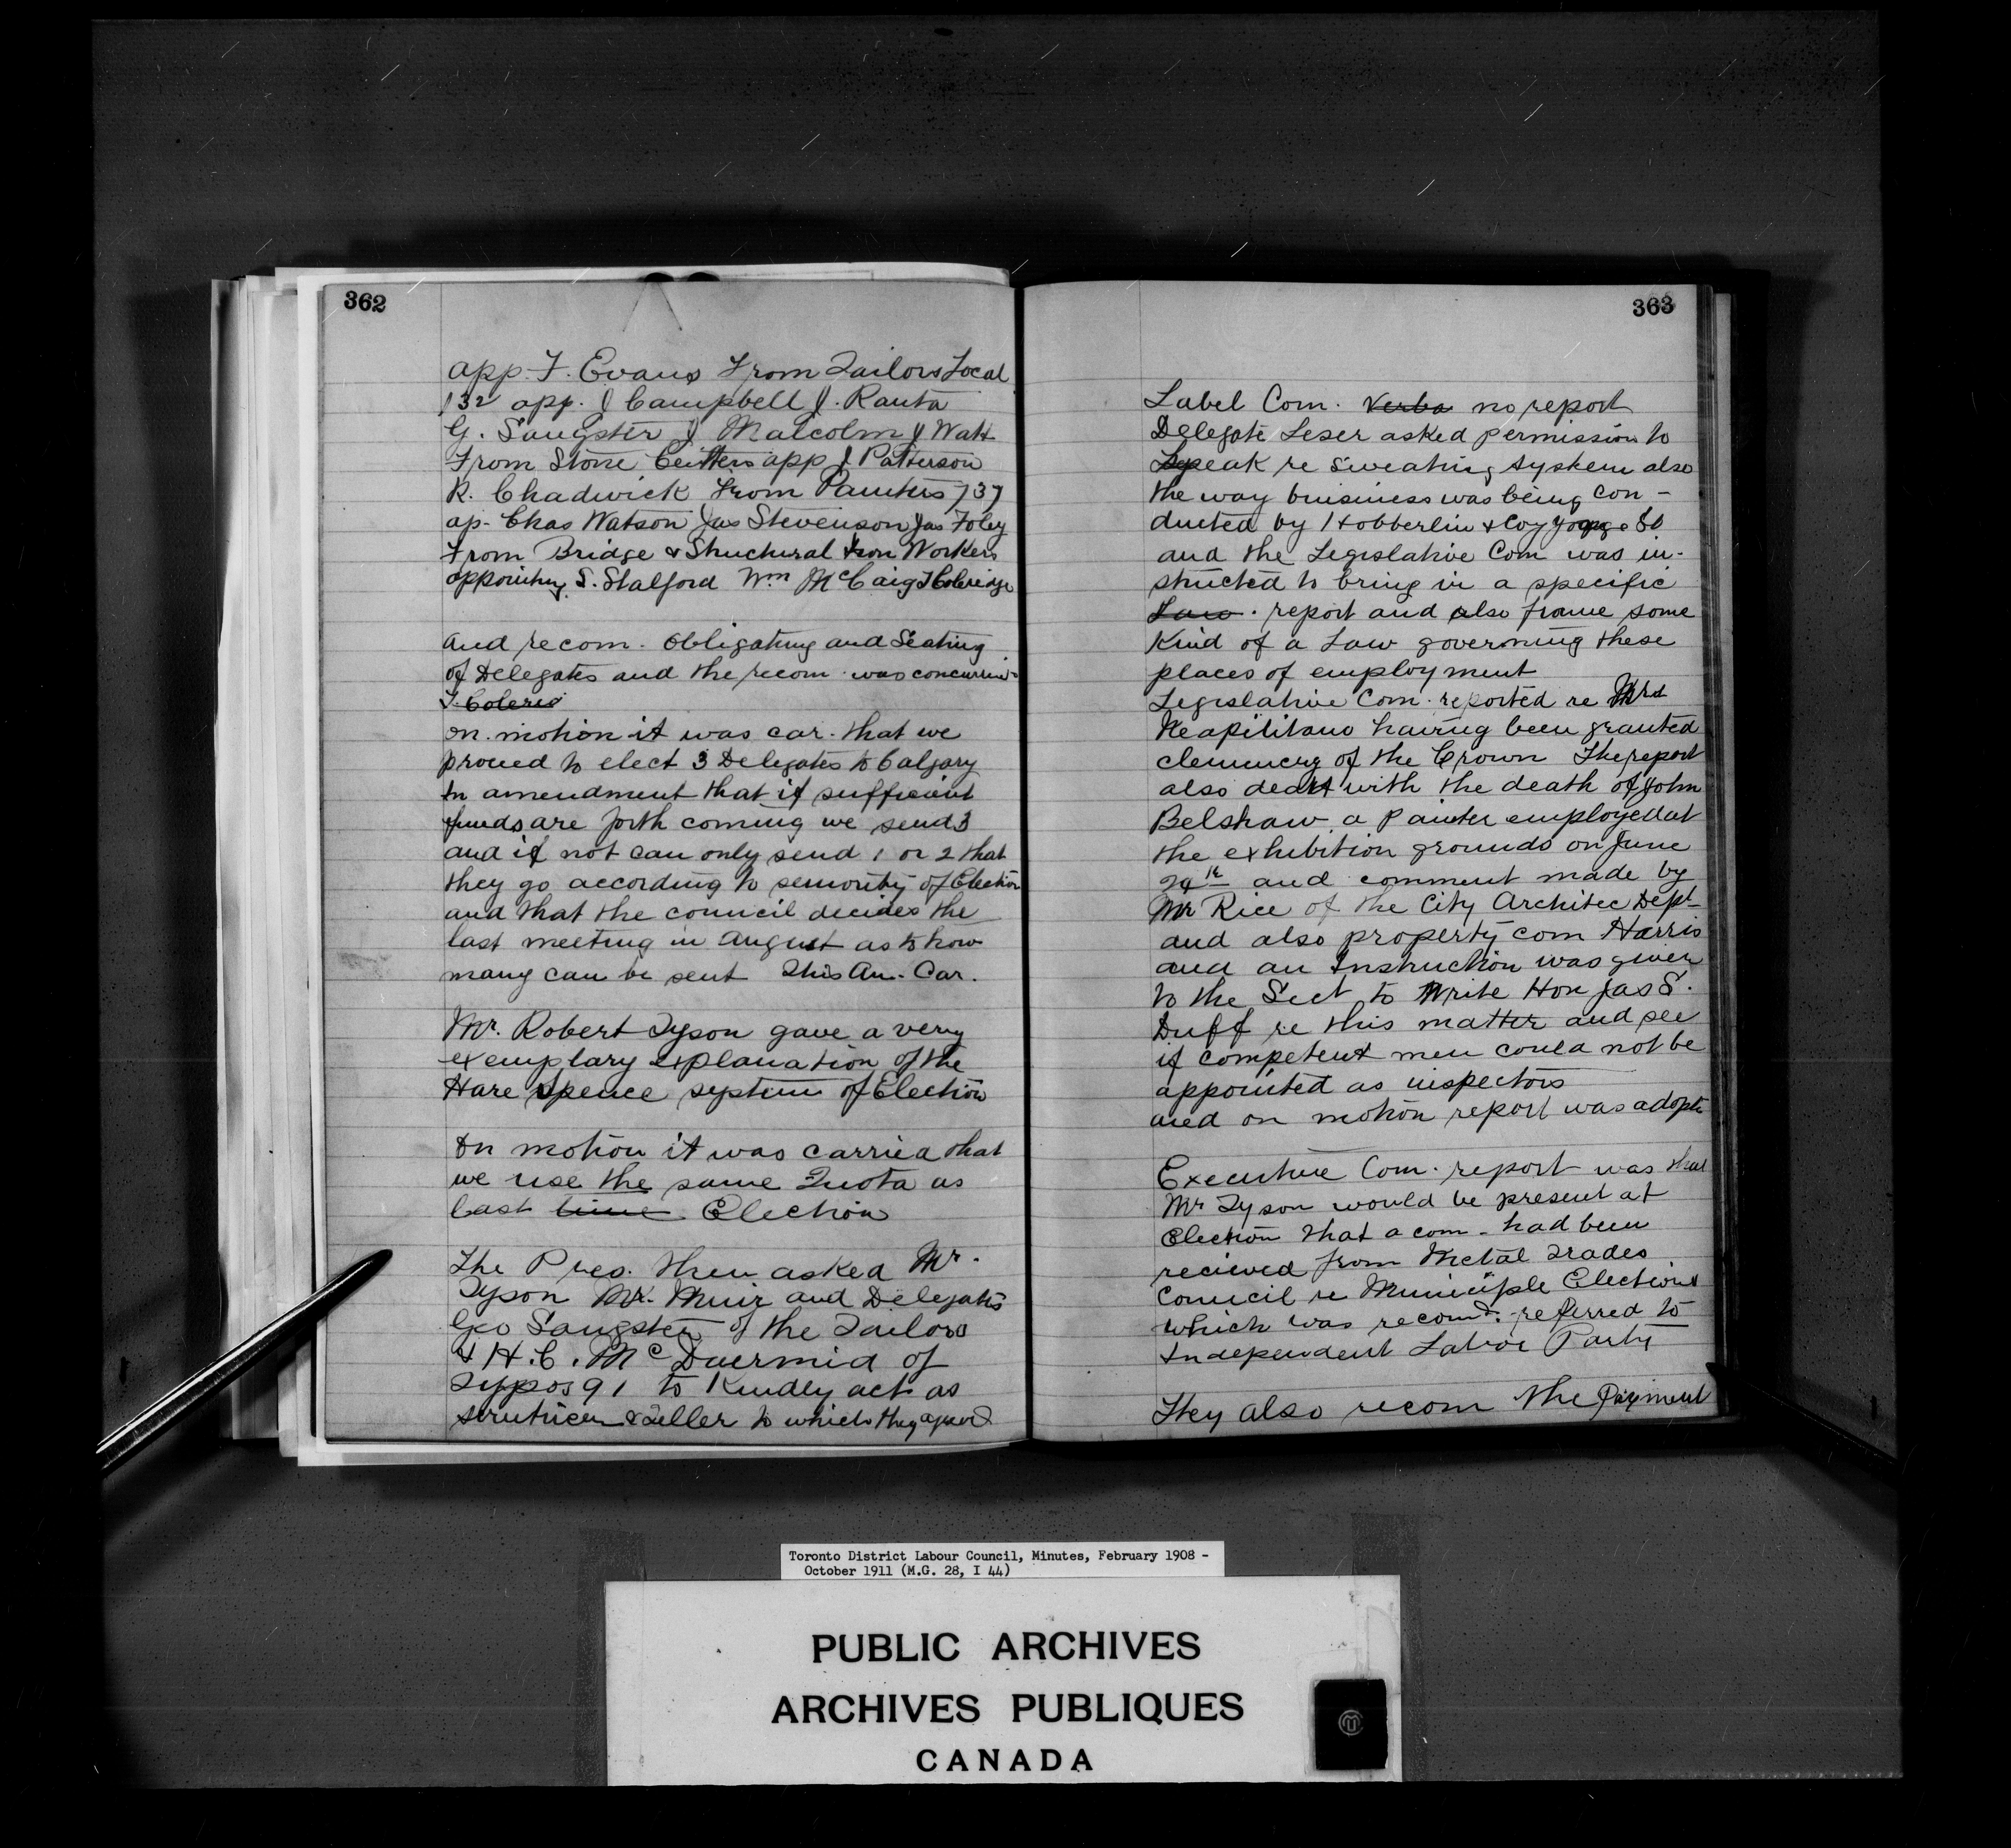 362
app. F. Evans From Tailors Local
132 app. J Campbell J. Ranta
G. Sangster J Malcolm J Watt
From Stone Cutters app J Patterson
R. Chadwick from Painters 737
ap- Chas Watson Jas Stevenson Jas Foley
From Bridge & Structural Iron Workers
appointing S. Stalford Wm McCaig T Coleridge
and recom. obligating and Seating
of Delegates and the recom. was concurred
T. Colerid
on motion it was car. that we
proceed to elect 3 Delegates to Calgary
In amendment that if sufficient
funds are forth coming we send 3
and if not can only send 1 or 2 that
they go according to seniority of Election
and that the council decides the
last meeting in August as to how
many can be sent This Am. Car.
Mr. Robert Tyson gave a very
exemplary explanation of the
Hare Spence system of Election
On motion it was carried that
we use the same Quota as
last time Election
The Pres. then asked Mr.
Tyson Mr. Muir and Delegates
Geo Sangster of the Tailors
& H.C. McDuermid of
Typos 91 to Kindly act as
scruticer & Teller to which they agreed
363
Label Com. Verba no report
Delegate Leser asked permission to
Speak re Sweating System also
the way buisiness was being con-
ducted by Hobberlin & Coy Yonge St
and the Legislative Com was in-
structed to bring in a specific
Law. report and also frame some
Kind of a Law governing these
places of employment
Legislative Com. reported re Mrs
Neapilitano having been granted
clemency of the Crown The report
also dealt with the death of John
Belshaw a Painter employed at
the exhibition grounds on June
24th and comment made by
Mr Rice of the City Architec Dept
and also property com Harris
and an Instruction was given
to the Sect to Write Hon Jas S.
Duff re this matter and see
if competent men could not be
appointed as inspectors
and on motion report was adopte
Executive Com. report was that
Mr Tyson would be present at
Election that a com- had been
recieved from Metal Trades
Council re Municiple Elections
which was recomd: referred to
Independent Labor Party
They also recom the payment
Toronto District Labour Council, Minutes, February 1908 -
October 1911 (M.G. 28, I 44)
PUBLIC ARCHIVES
ARCHIVES PUBLIQUES
CANADA